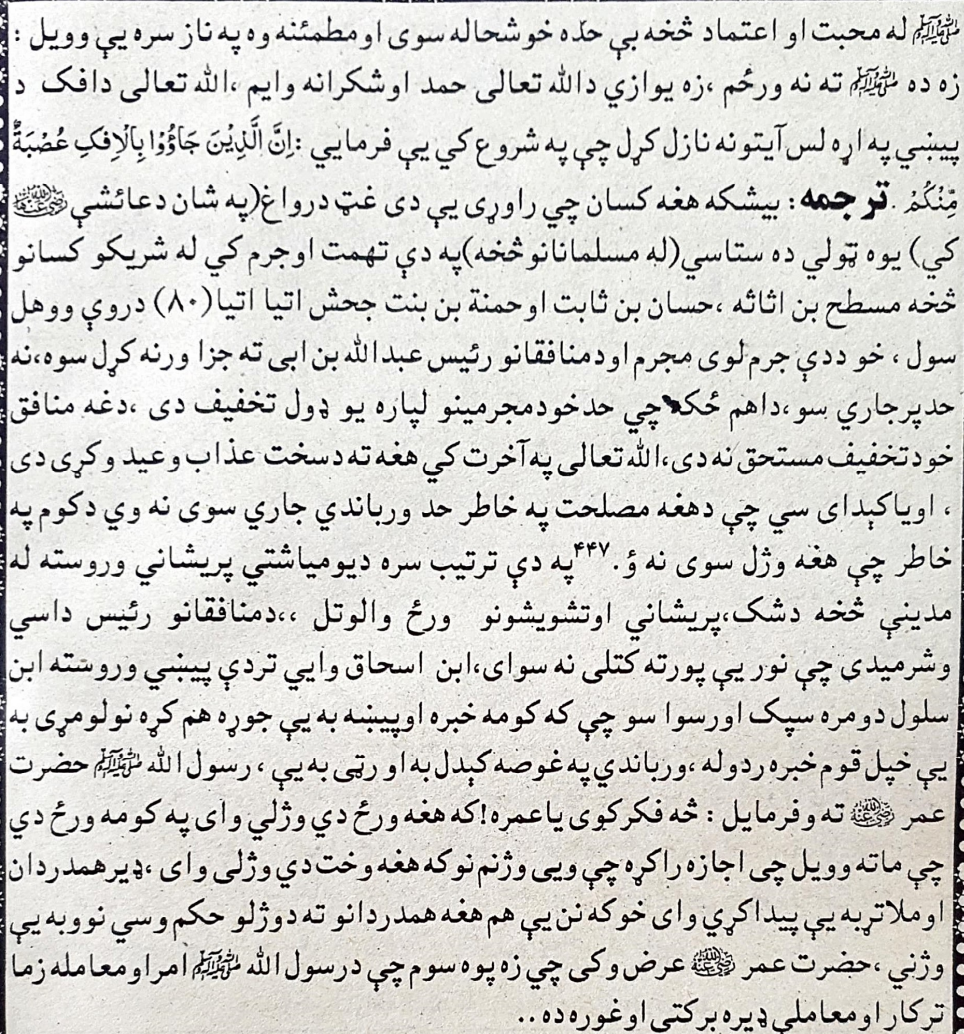 ﷺ له محبت او اعتماد څخه بې حده خوشحاله سوی او مطمئنه وه په ناز سره يې وويل :
زه ده ﷺ ته نه ورځم ،زه يوازي دالله تعالی حمد اوشکرانه وايم ،الله تعالی دافک د
پيښي په اړه لس آيتونه نازل کړل چې په شروع کي يې فرمايي :اِنَّ الَّذِيْنَ جَاؤُوْا بِالْاِفْكِ عُصْبَةٌ
مِّنْكُمْ .ترجمه: بيشکه هغه کسان چي راوړی يې دی غټ درواغ(په شان دعائشې رضي الله عنها
کي) يوه ټولي ده ستاسي(له مسلمانانو څخه)په دې تهمت اوجرم کي له شريکو کسانو
څخه مسطح بن اثاثه ،حسان بن ثابت اوحمنة بن بنت جحش اتيا اتيا(۸۰) دروې ووهل
سول ، خو ددې جرم لوی مجرم اودمنافقانو رئيس عبدالله بن ابی ته جزا ورنه کړل سوه،نه
حدپرجاري سو ،داهم ځکه چي حدخودمجرمينو لپاره يو ډول تخفيف دی ،دغه منافق
خودتخفيف مستحق نه دی،الله تعالی په آخرت کي هغه ته دسخت عذاب وعيد وکړی دی
، اوياکېدای سي چې دهغه مصلحت په خاطر حد ورباندي جاري سوی نه وي دکوم په
خاطر چې هغه وژل سوی نه ؤ.۴۴۷په دې ترتيب سره ديومياشتي پريشاني وروسته له
مدينې څخه دشک،پريشاني اوتشويشونو ورځ والوتل ،،دمنافقانو رئيس داسي
وشرميدی چې نور يې پورته کتلی نه سوای،ابن اسحاق وايي تردې پيښي وروسته ابن
سلول دومره سپک اورسوا سو چې که کومه خبره اوپيښه به يې جوړه هم کړه نولومړی به
يې خپل قوم خبره ردوله ،ورباندي په غوصه کېدل به او رټی به يې ، رسول الله ﷺ حضرت
عمر رضي الله عنه ته وفرمايل : څه فکرکوې ياعمره!که هغه ورځ دي وژلي وای په کومه ورځ دي
چې ماته وويل چی اجازه راکړه چې ويی وژنم نوکه هغه وخت دي وژلی وای ،ډيرهمدردان
اوملاتړبه يې پيداکړي وای خوکه نن يې هم هغه همدردانو ته دوژلو حکم وسي نووبه يې
وژني ،حضرت عمر رضي الله عنه عرض وکی چي زه پوه سوم چې درسول الله ﷺ امراومعامله زما
ترکار او معاملې ډيره برکتي اوغوره ده . .